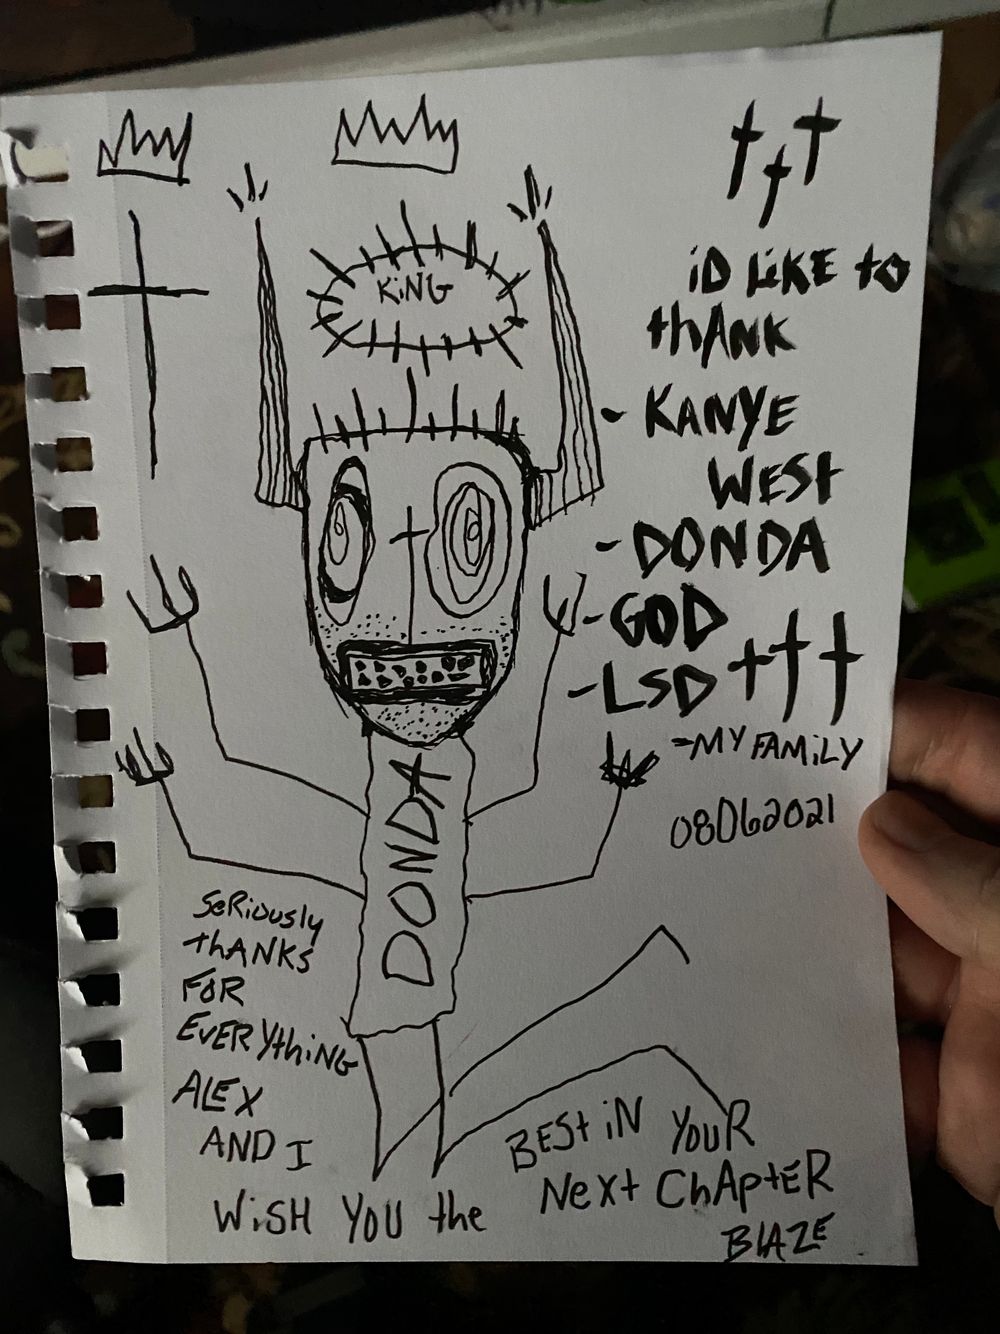 KiNG
iD LiKE to
thANK
- KANYE
WESt
- DONDA
- GOD
- LSD
- MY FAMiLY
08062021
DONDA
SeRiOUSly
thANKS
FOR
EVERYthiNG
ALEX
AND I
WiSH YOU the
BESt iN YOUR
NeXt ChAPtER
BLAZE